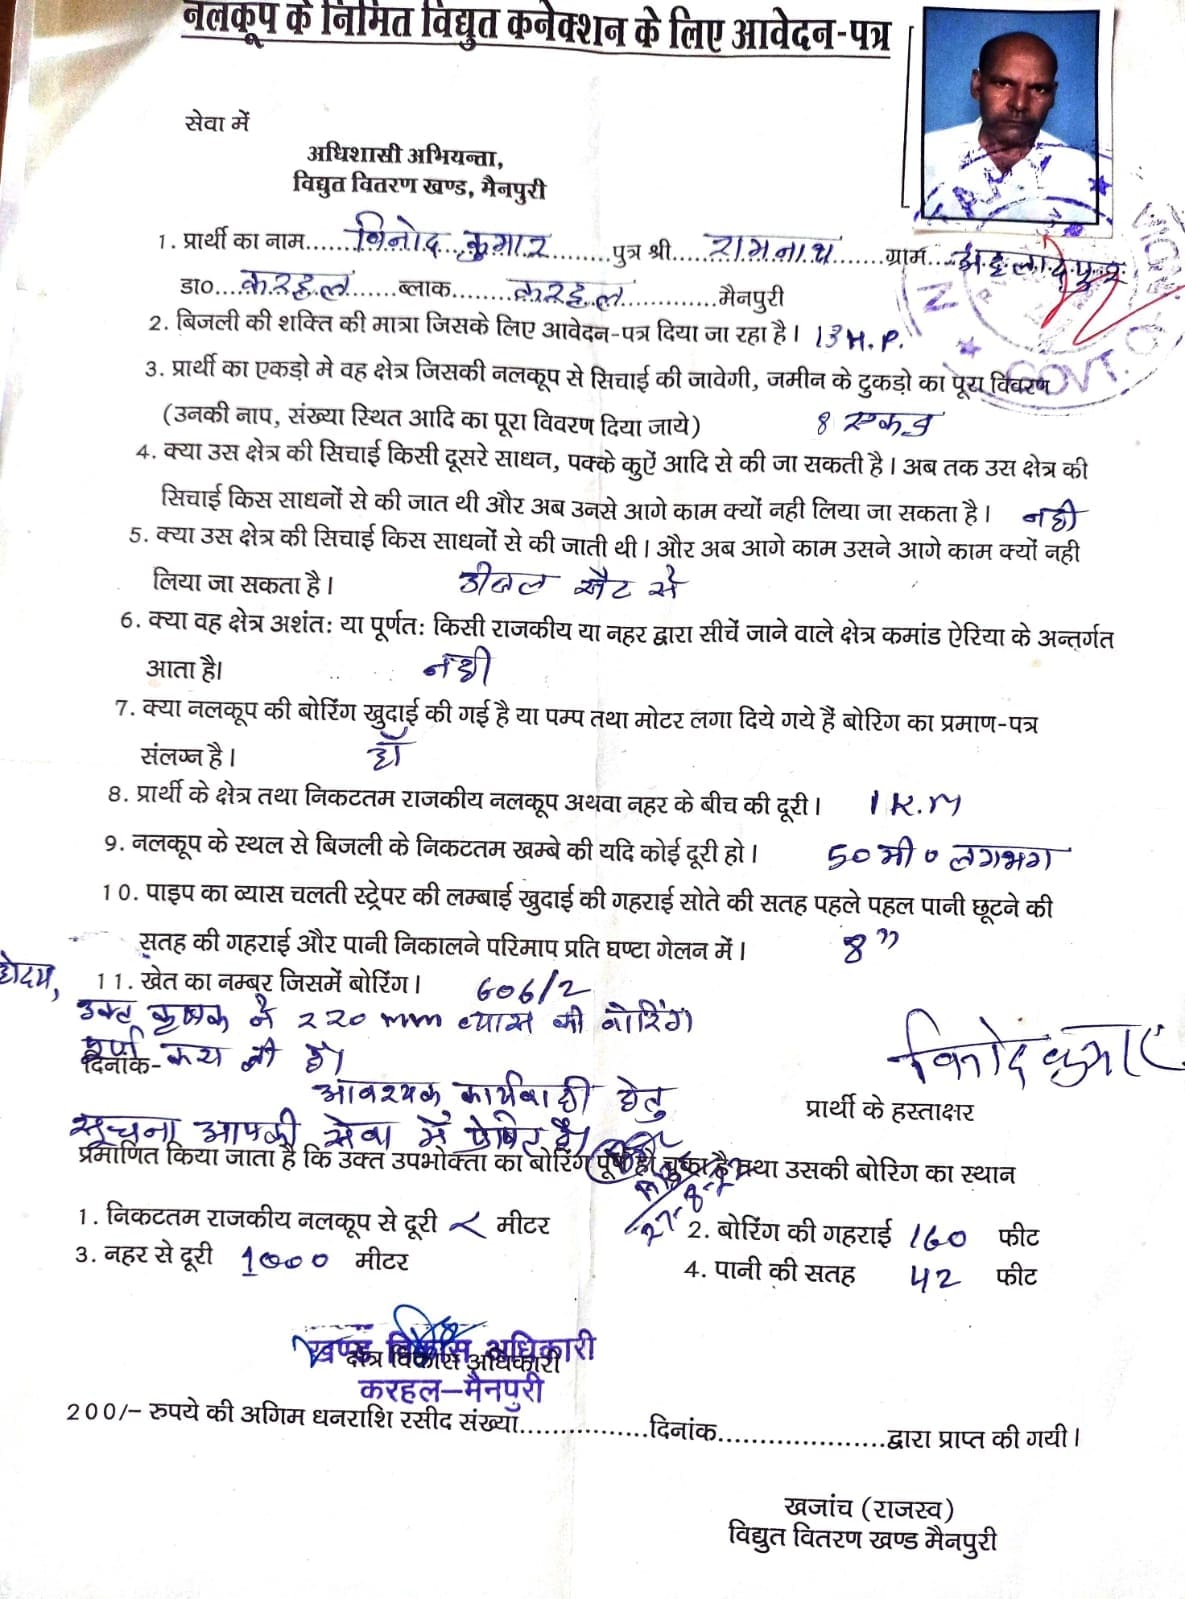 नलकूप के निमित विद्युत कनेक्शन के लिए आवेदन-पत्र
सेवा में
अधिशासी अभियन्ता,
विद्युत वितरण खण्ड, मैनपुरी
1. प्रार्थी का नाम......विनोद कुमार......पुत्र श्री.....रामनाथ.......ग्राम....अहलादपुर
डा०....करहल.....ब्लाक........करहल.............मैनपुरी
2. बिजली की शक्ति की मात्रा जिसके लिए आवेदन-पत्र दिया जा रहा है। 13 H.P.
3. प्रार्थी का एकड़ो मे वह क्षेत्र जिसकी नलकूप से सिचाई की जावेगी, जमीन के टुकड़ो का पूरा विवरण
(उनकी नाप, संख्या स्थित आदि का पूरा विवरण दिया जाये) 8 एकड
4. क्या उस क्षेत्र की सिचाई किसी दूसरे साधन, पक्के कुऐं आदि से की जा सकती है। अब तक उस क्षेत्र की
सिचाई किस साधनों से की जात थी और अब उनसे आगे काम क्यों नही लिया जा सकता है। नही
5. क्या उस क्षेत्र की सिचाई किस साधनों से की जाती थी। और अब आगे काम उसने आगे काम क्यों नही
लिया जा सकता है। डीजल सैट से
6. क्या वह क्षेत्र अशंतः या पूर्णतः किसी राजकीय या नहर द्वारा सीचें जाने वाले क्षेत्र कमांड ऐरिया के अन्तर्गत
आता है। नही
7. क्या नलकूप की बोरिंग खुदाई की गई है या पम्प तथा मोटर लगा दिये गये हैं बोरिंग का प्रमाण-पत्र
संलग्न है। हाँ
8. प्रार्थी के क्षेत्र तथा निकटतम राजकीय नलकूप अथवा नहर के बीच की दूरी। 1 K.M
9. नलकूप के स्थल से बिजली के निकटतम खम्बे की यदि कोई दूरी हो। 50 मी० लगभग
10. पाइप का व्यास चलती स्ट्रेपर की लम्बाई खुदाई की गहराई सोते की सतह पहले पहल पानी छूटने की
सतह की गहराई और पानी निकालने परिमाप प्रति घण्टा गेलन में। 8"
होदय, 11. खेत का नम्बर जिसमें बोरिंग। 606/2
उक्त कृषक ने 220 mm व्यास की बोरिंग
पूर्ण करा ली है।
दिनांक-
विनोद कुमार
आवश्यक कार्यवाही हेतु
प्रार्थी के हस्ताक्षर
सूचना आपकी सेवा में प्रेषित है।
प्रमाणित किया जाता है कि उक्त उपभोक्ता का बोरिंग पूर्ण हो चुका है तथा उसकी बोरिंग का स्थान
27-8-
1. निकटतम राजकीय नलकूप से दूरी मीटर 2. बोरिंग की गहराई 160 फीट
3. नहर से दूरी 1000 मीटर 4. पानी की सतह 42 फीट
खण्ड विकास अधिकारी
क्षेत्र विकास अधिकारी
करहल—मैनपुरी
200/- रुपये की अगिम धनराशि रसीद संख्या...............दिनांक....................द्वारा प्राप्त की गयी।
खजांच (राजस्व)
विद्युत वितरण खण्ड मैनपुरी